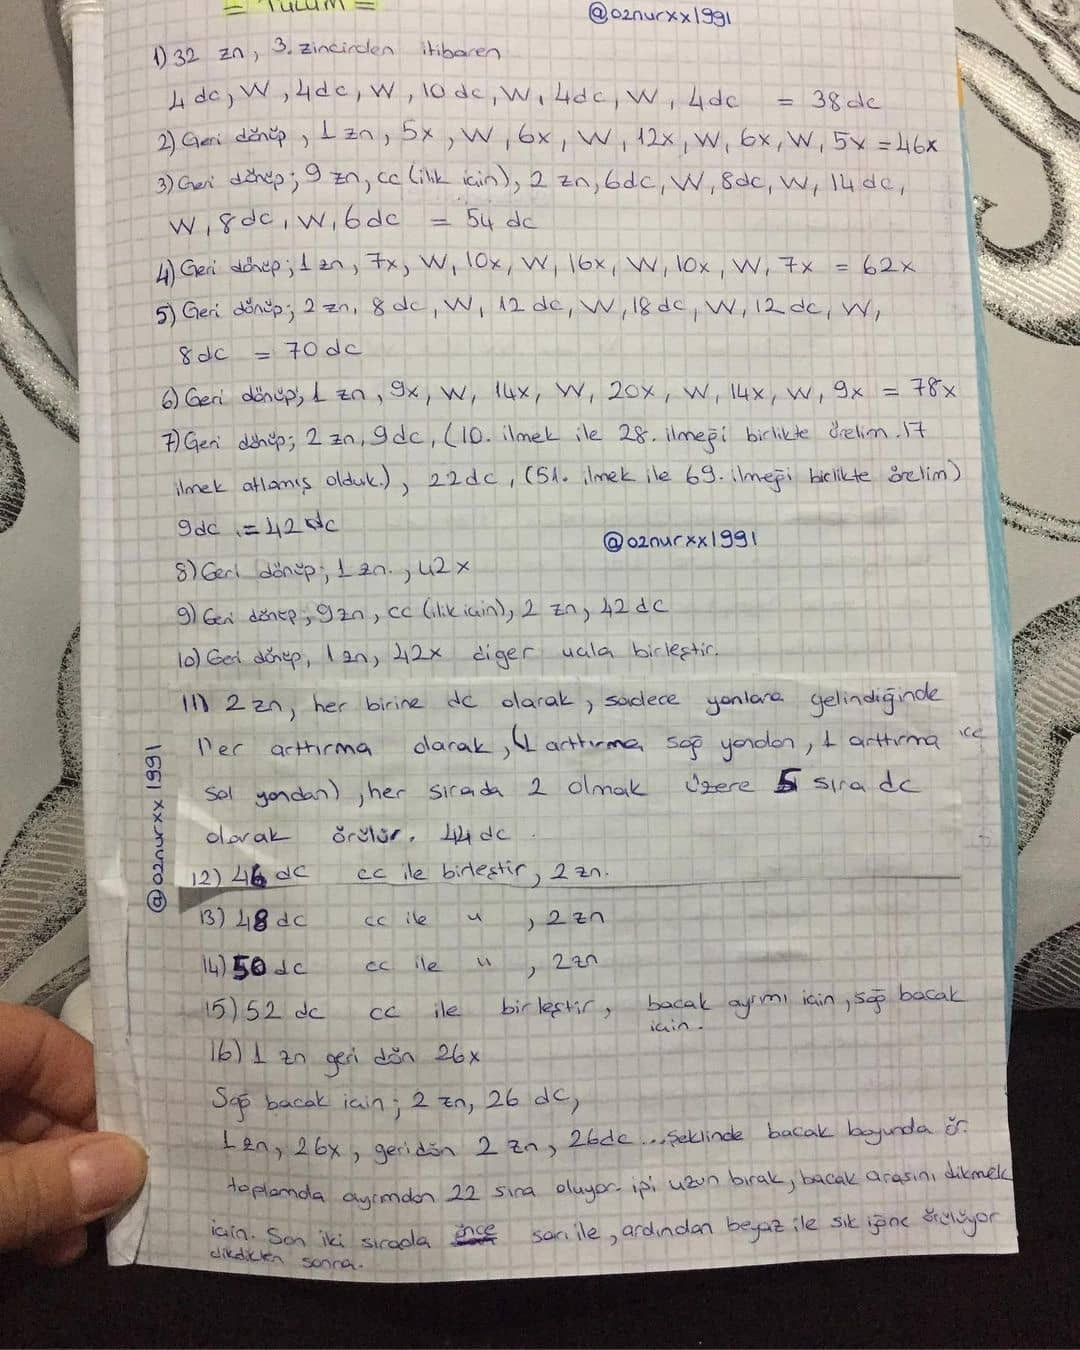 = TULUM =
@oznurxx1991
1) 32 zn, 3. zincirden itibaren
4 dc, W, 4dc, W, 10 dc, W, 4dc, W, 4dc = 38dc
2) Geri dönüp, 1 zn, 5x, W, 6x, W, 12x, W, 6x, W, 5x = 46x
3) Geri dönüp; 9 zn, cc (ilik için), 2 zn, 6dc, W, 8dc, W, 14 dc,
W, 8dc, W, 6dc = 54 dc
4) Geri dönüp; 1 zn, 7x, W, 10x, W, 16x, W, 10x, W, 7x = 62x
5) Geri dönüp; 2 zn, 8 dc, W, 12 dc, W, 18 dc, W, 12 dc, W,
8dc = 70 dc
6) Geri dönüp; 1 zn, 9x, W, 14x, W, 20x, W, 14x, W, 9x = 78x
7) Geri dönüp; 2 zn, 9dc, (10. ilmek ile 28. ilmeği birlikte örelim. 17
ilmek atlamış olduk.), 22dc, (51. ilmek ile 69. ilmeği birlikte örelim)
9dc = 42 dc
@oznurxx1991
8) Geri dönüp; 1 zn., 42x
9) Geri dönüp; 9 zn, cc (ilik için), 2 zn, 42 dc
10) Geri dönüp, 1 zn, 42x diğer uçla birleştir.
11) 2 zn, her birine dc olarak, sadece yanlara gelindiğinde
1'er arttırma olarak, (1 arttırma sağ yandan, 1 arttırma ise
sol yandan), her sırada 2 olmak üzere 5 sıra dc
olarak örülür. 44 dc.
12) 46 dc cc ile birleştir, 2 zn.
13) 48 dc cc ile " , 2 zn
14) 50 dc cc ile " , 2 zn
15) 52 dc cc ile birleştir, bacak ayrımı için, sağ bacak
için.
16) 1 zn geri dön 26x
Sağ bacak için; 2 zn, 26 dc,
1 zn, 26x, geri dön 2 zn, 26dc ... şeklinde bacak boyunda ör.
toplamda ayrımdan 22 sıra oluyor. ipi uzun bırak, bacak arasını dikmek
için. Son iki sırada önce sarı ile, ardından beyaz ile sık iğne örülüyor
dikdikten sonra.
@oznurxx1991